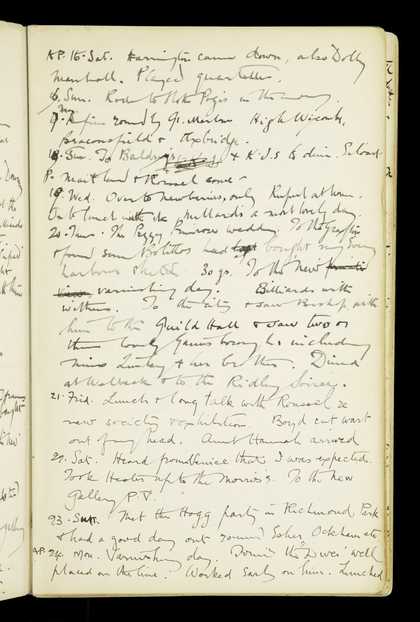 AP. 15. Sat. Harrington came down, also Dolly
Marshall. Played quartettes.
16. Sun. Rode to Stoke Pogis in the morning.
17. Mon. fine round by Gt. Marlow High Wicomb,
Beaconsfield & Uxbridge.
18. To & K. & S to dine. Stuart
P. Maitland & Roussel came
19. Wed. Over to Newberries, only Rupert at home.
On to lunch with the Hulberts a most lovely day.
20. Thur. The Peggy Primrose wedding. To the Grafton
& found some had bought my Surrey
harbour sketch 30 gs. To the New
varnishing day. Billiards with
Withers. To the city & saw Bishop with
him to the Guild Hall & saw two or
three lovely Gainsboroughs including
Miss Linley & her brother. Dined
at Wallack & to the Ridley Soiree.
21. Frid. Lunch & long talk with Roussel re
new society & exhibition. Boyd cut wart
out of my head. Aunt Hannah arrived
22. Sat. Heard from Venice that I was expected.
Took Hester up to the Morris's. To the New
Gallery P.V.
23. Sun. Met the Hogg party in Richmond Park
& had a good day out round Esher, Ockham etc
AP. 24. Mon. Varnishing day. 'Down the River' well
placed on the line. Worked early on Lunched